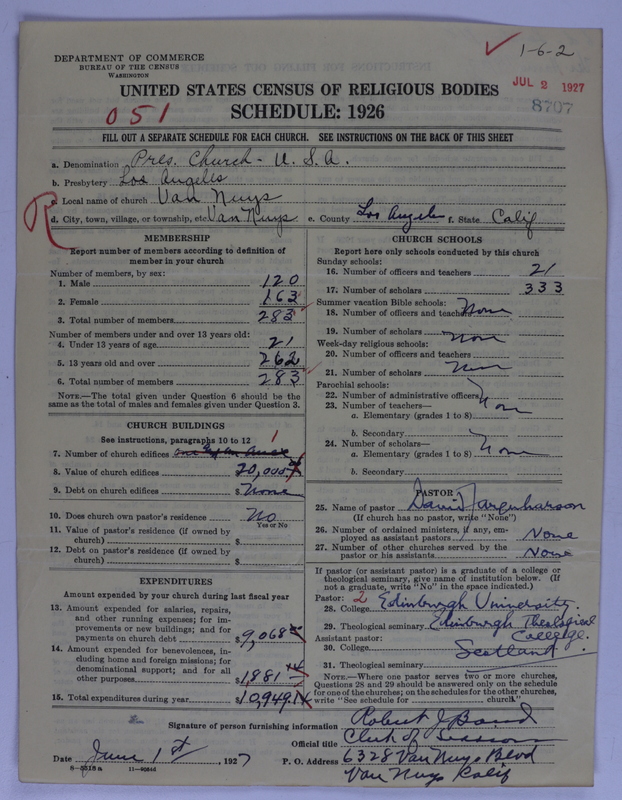 DEPARTMENT OF COMMERCE
BUREAU OF THE CENSUS
WASHINGTON
1-6-2
JUL 2 1927
8707
UNITED STATES CENSUS OF RELIGIOUS BODIES
051
SCHEDULE: 1926
FILL OUT A SEPARATE SCHEDULE FOR EACH CHURCH. SEE INSTRUCTIONS ON THE BACK OF THIS SHEET
a. Denomination Pres. Church - U.S.A.
b. Presbytery Los Angeles
c. Local name of church Van Nuys
d. City, town, village, or township, etc. Van Nuys e. County Los Angeles f. State Calif
MEMBERSHIP
Report number of members according to definition of
member in your church
Number of members, by sex:
1. Male 120
2. Female 163
3. Total number of members 283
Number of members under and over 13 years old:
4. Under 13 years of age 21
5. 13 years old and over 262
6. Total number of members 283
NOTE.—The total given under Question 6 should be the
same as the total of males and females given under Question 3.
CHURCH BUILDINGS
See instructions, paragraphs 10 to 12
7. Number of church edifices 1
8. Value of church edifices $20,000
9. Debt on church edifices $None
10. Does church own pastor's residence No
Yes or No
11. Value of pastor's residence (if owned by
church) $
12. Debt on pastor's residence (if owned by
church) $
EXPENDITURES
Amount expended by your church during last fiscal year
13. Amount expended for salaries, repairs,
and other running expenses; for im-
provements or new buildings; and for
payments on church debt $9,068
14. Amount expended for benevolences, in-
cluding home and foreign missions; for
denominational support; and for all
other purposes $1881.14
15. Total expenditures during year $10,949.14
CHURCH SCHOOLS
Report here only schools conducted by this church
Sunday schools:
16. Number of officers and teachers 21
17. Number of scholars 333
Summer vacation Bible schools:
18. Number of officers and teachers None
19. Number of scholars None
Week-day religious schools:
20. Number of officers and teachers
21. Number of scholars None
Parochial schools:
22. Number of administrative officers
23. Number of teachers— None
a. Elementary (grades 1 to 8)
b. Secondary
24. Number of scholars— None
a. Elementary (grades 1 to 8)
b. Secondary
PASTOR
25. Name of pastor David Farquharson
(If church has no pastor, write "None")
26. Number of ordained ministers, if any, em-
ployed as assistant pastors None
27. Number of other churches served by the
pastor or his assistants None
If pastor (or assistant pastor) is a graduate of a college or
theological seminary, give name of institution below. (If
not a graduate, write "No" in the space indicated.)
Pastor: 2
28. College Edinburgh University.
29. Theological seminary Edinburgh Theological
College.
Assistant pastor:
30. College Scotland
31. Theological seminary
NOTE.—Where one pastor serves two or more churches,
Questions 28 and 29 should be answered only on the schedule
for one of the churches; on the schedules for the other churches,
write "See schedule for church."
Signature of person furnishing information Robert J. Baird
Official title Clerk of Session
Date June 1st, 1927 P. O. Address 6328 Van Nuys Blvd
Van Nuys Calif
8-5516a 11-9084d